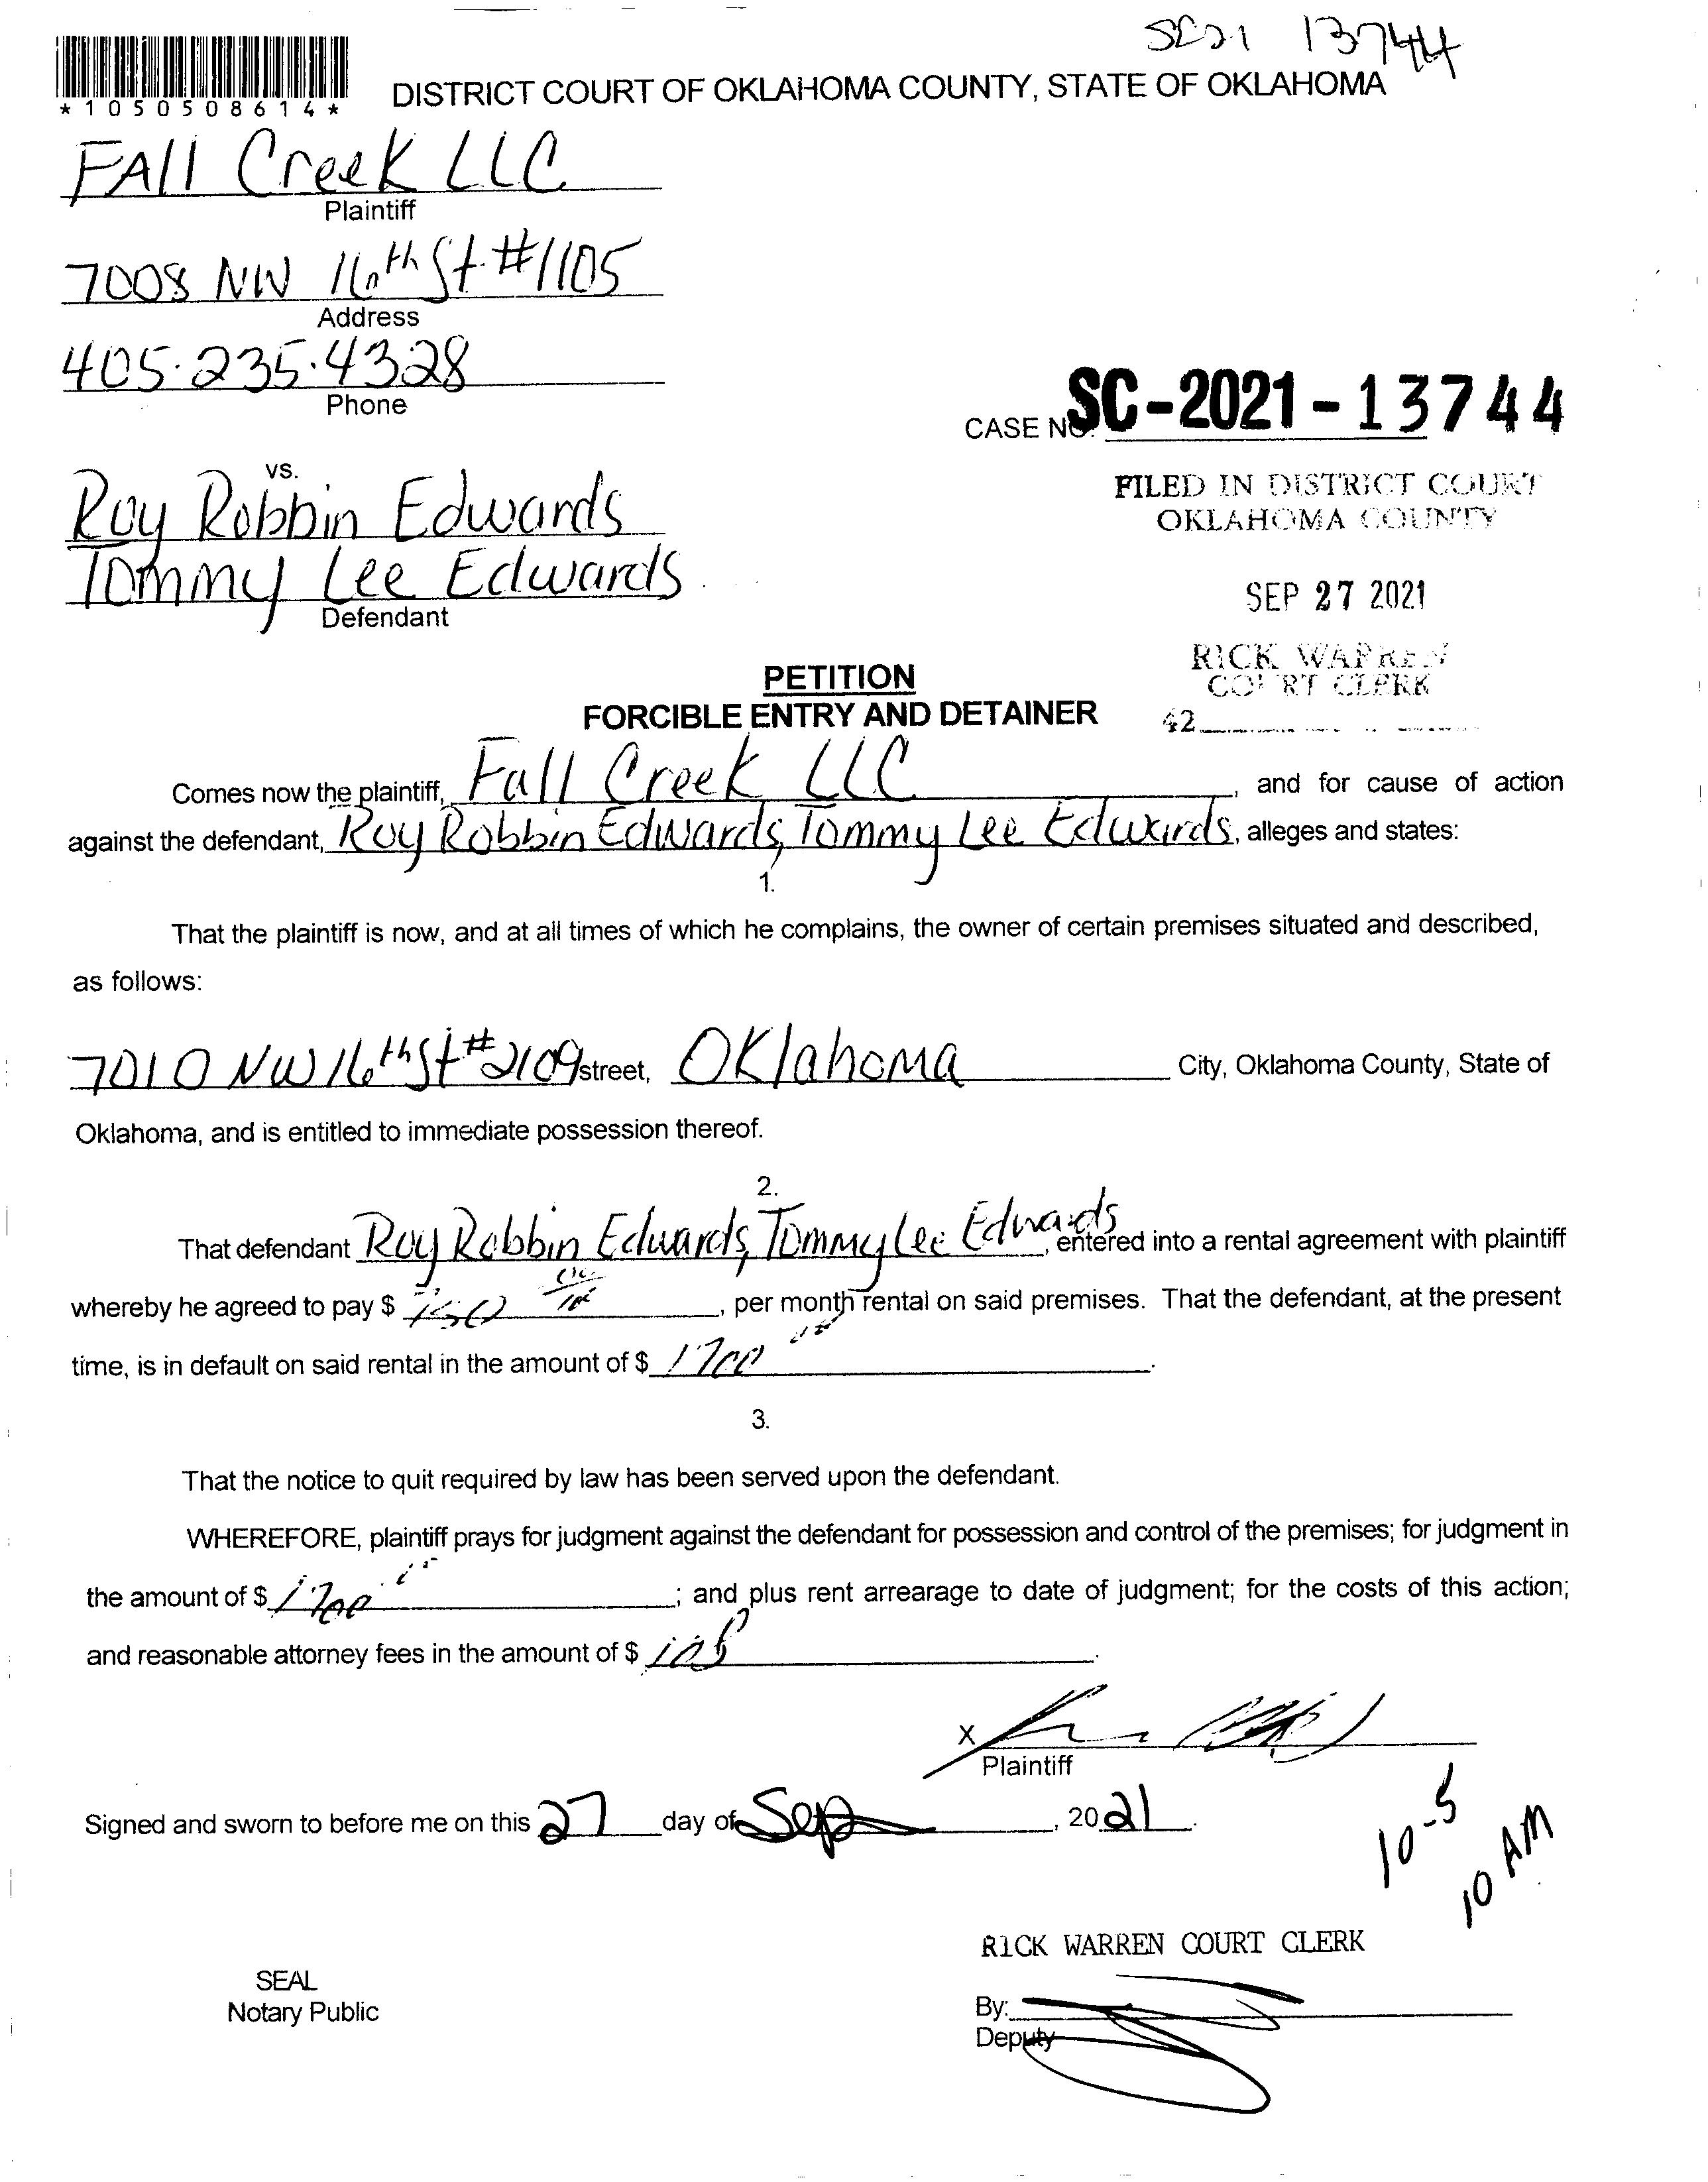 SC21 13744
*1050508614*
DISTRICT COURT OF OKLAHOMA COUNTY, STATE OF OKLAHOMA
FAll Creek LLC
Plaintiff
7008 NW 16th St #1105
Address
405.235.4328
Phone
CASE NO. SC-2021-13744
vs.
FILED IN DISTRICT COURT
OKLAHOMA COUNTY
Roy Robbin Edwards
Tommy Lee Edwards
Defendant
SEP 27 2021
RICK WARREN
COURT CLERK
42
PETITION
FORCIBLE ENTRY AND DETAINER
Comes now the plaintiff, Fall Creek LLC, and for cause of action
against the defendant, Roy Robbin Edwards, Tommy Lee Edwards, alleges and states:
1.
That the plaintiff is now, and at all times of which he complains, the owner of certain premises situated and described,
as follows:
7010 NW 16th St #2109 street, Oklahoma City, Oklahoma County, State of
Oklahoma, and is entitled to immediate possession thereof.
2.
That defendant Roy Robbin Edwards, Tommy Lee Edwards, entered into a rental agreement with plaintiff
whereby he agreed to pay $, per month rental on said premises. That the defendant, at the present
time, is in default on said rental in the amount of $ 1700.
3.
That the notice to quit required by law has been served upon the defendant.
WHEREFORE, plaintiff prays for judgment against the defendant for possession and control of the premises; for judgment in
the amount of $ 1700; and plus rent arrearage to date of judgment; for the costs of this action;
and reasonable attorney fees in the amount of $.
X
Plaintiff
Signed and sworn to before me on this 27 day of Sep, 2021.
10-5
10 AM
RICK WARREN COURT CLERK
SEAL
Notary Public
By:
Deputy